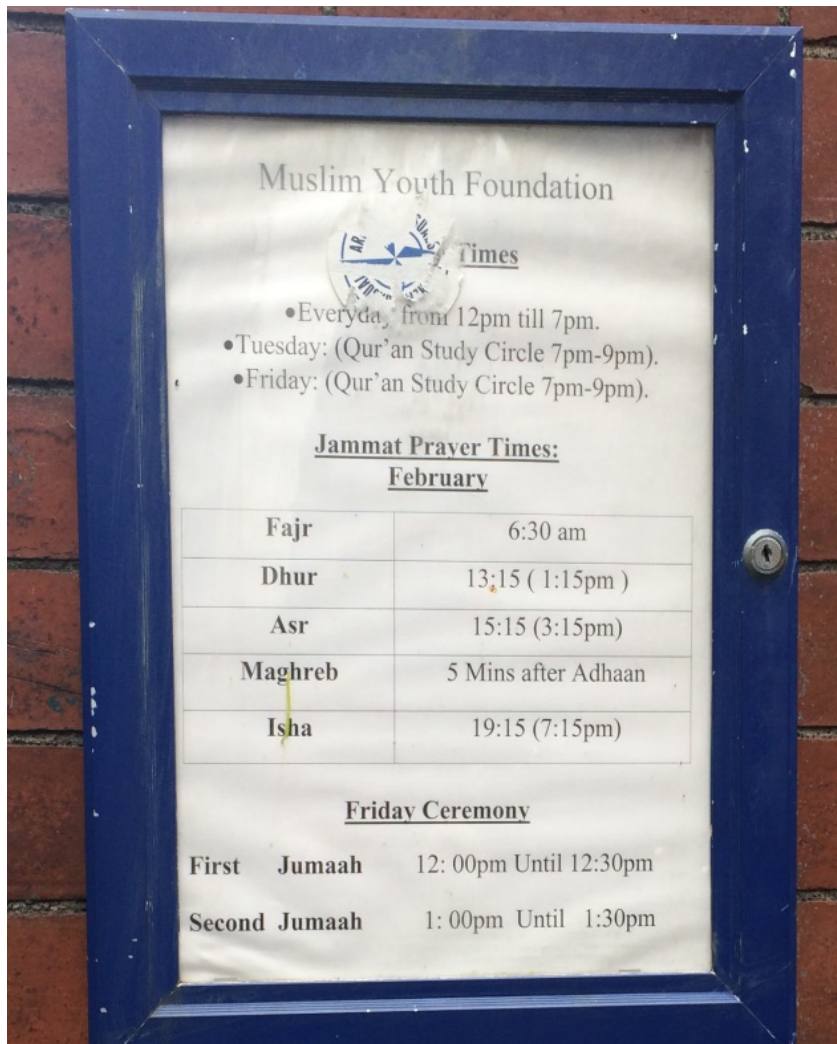 Muslim Youth Foundation
Times
•Everyday from 12pm till 7pm.
•Tuesday: (Qur'an Study Circle 7pm-9pm).
•Friday: (Qur'an Study Circle 7pm-9pm).
Jammat Prayer Times:
February
Fajr 6:30 am
Dhur 13:15 ( 1:15pm )
Asr 15:15 (3:15pm)
Maghreb 5 Mins after Adhaan
Isha 19:15 (7:15pm)
Friday Ceremony
First Jumaah 12: 00pm Until 12:30pm
Second Jumaah 1: 00pm Until 1:30pm